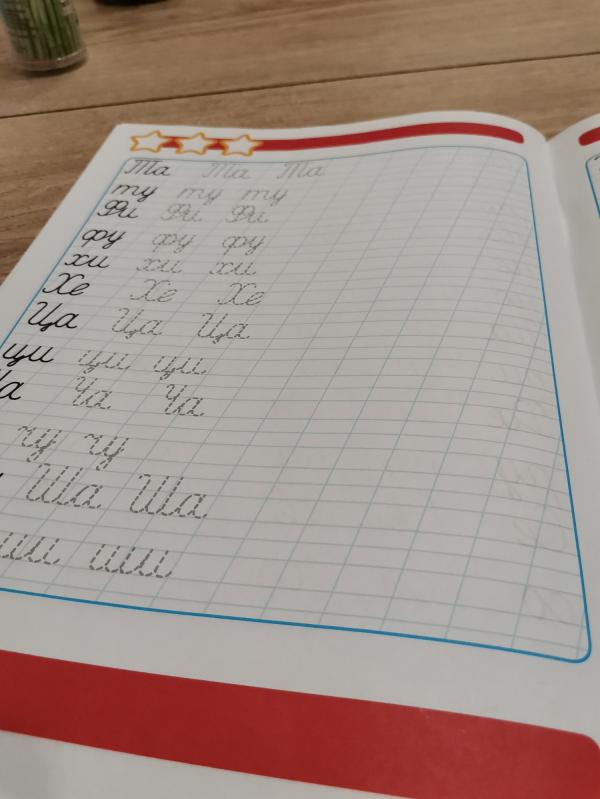 Та Та Та
ту ту ту
Фи Фи Фи
фу фу фу
хи хи хи
Хе Хе Хе
Ца Ца Ца
ци ци ци
Ча Ча Ча
чу чу
Ша Ша
ши ши